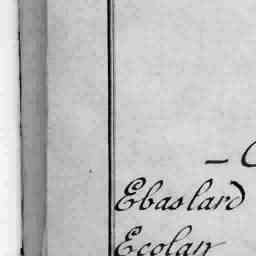 Ebaslard
Ecolan